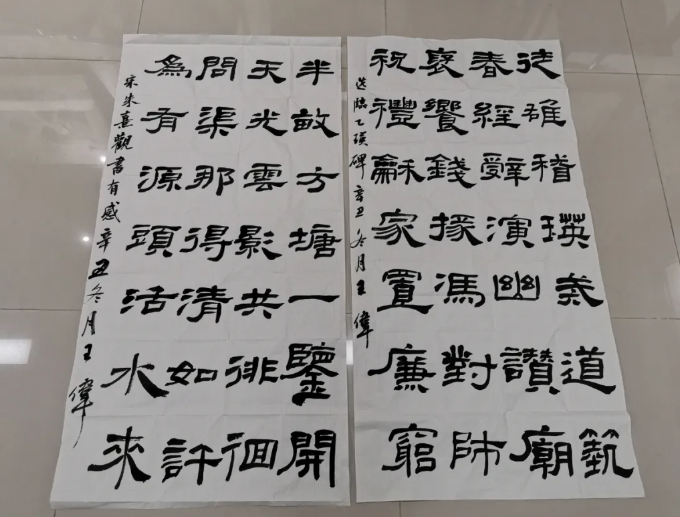 徒雄稽瑛道藝
春經辭演幽讚廟
褒饗錢掾馮對師
祝禮龢家置廉窮
选临乙瑛碑辛丑冬月王偉
半畝方塘一鑒開
天光雲影共徘徊
問渠那得清如許
為有源頭活水來
宋朱熹觀書有感辛丑冬月王偉